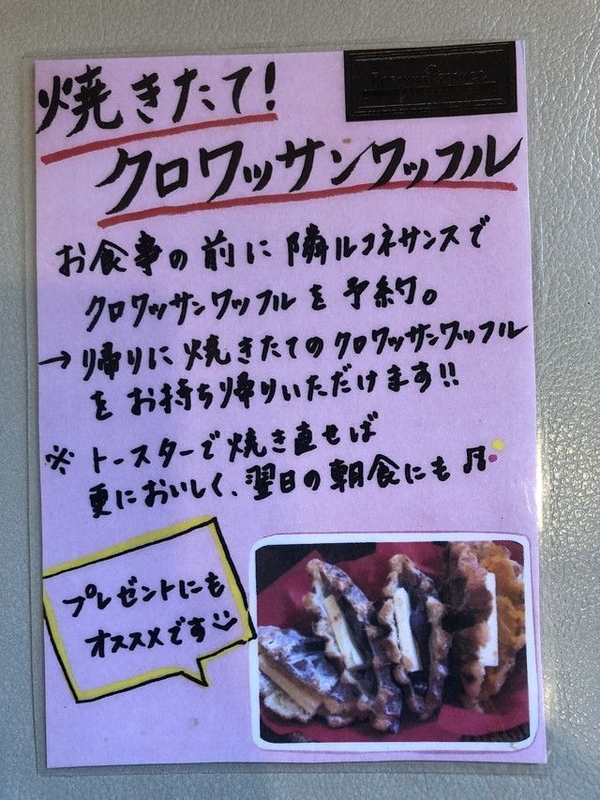 焼きたて!
クロワッサンワッフル
お食事の前に隣ルコネサンスで
クロワッサンワッフルを予約。
→帰りに焼きたてのクロワッサンワッフル
をお持ち帰りいただけます!!
※トースターで焼き直せば
更においしく、翌日の朝食にも♫
プレゼントにも
オススメです